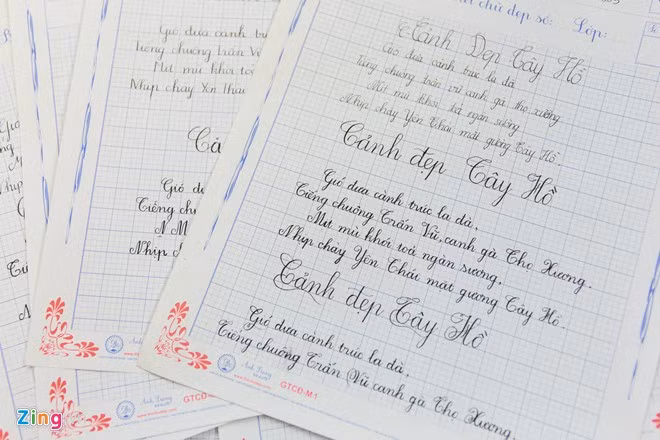 chữ đẹp số: Lớp:
Cảnh Đẹp Tây Hồ
Gió đưa cành trúc la đà
Tiếng chuông trấn vũ canh gà thọ xương
Mịt mù khói toả ngàn sương
Nhịp chày Yên Thái mặt gương Tây Hồ.
Cảnh đẹp Tây Hồ
Gió đưa cành trúc la đà,
Tiếng chuông Trấn Vũ, canh gà Thọ Xương.
Mịt mù khói toả ngàn sương,
Nhịp chày Yên Thái mặt gương Tây Hồ.
Cảnh đẹp Tây Hồ
Gió đưa cành trúc la đà,
Tiếng chuông Trấn Vũ, canh gà Thọ Xương.
GTCĐ-M1
Gió đưa cành trúc
Tiếng chuông trấn Vũ
Mịt mù khói toả
Nhịp chày Yên Thái
Cả
Gió đư
Tiếng chu
Nhịp
GTCĐ
Zing